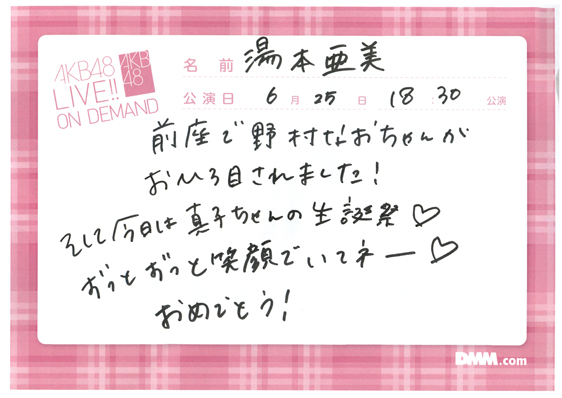 AKB48
LIVE!!
ON DEMAND
AKB
48
名前 湯本亜美
公演日 6月25日 18:30公演
前座で野村なおちゃんが
おひろ目されました!
そして今日は真子ちゃんの生誕祭♡
ずっとずっと笑顔でいてネー♡
おめでとう!
DMM.com